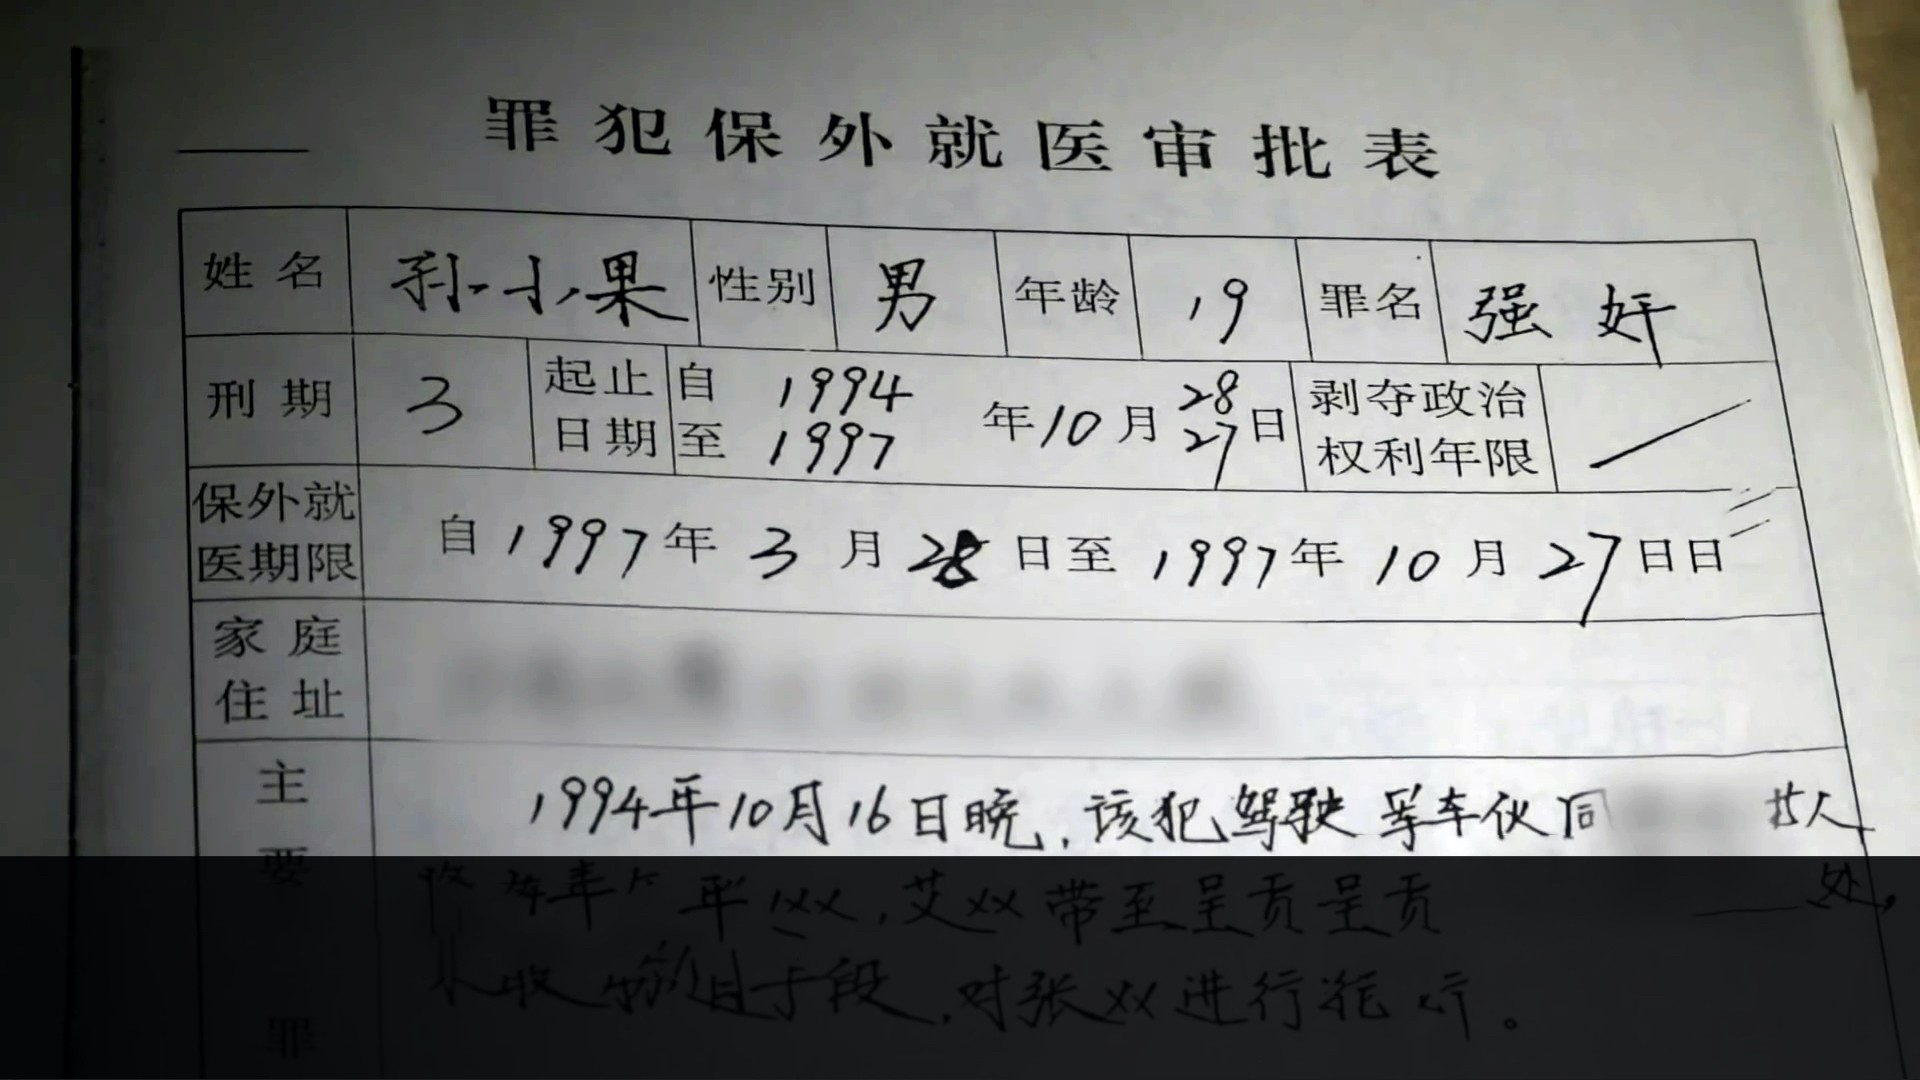 罪犯保外就医审批表
姓名 孙小果 性别 男 年龄 19 罪名 强奸
刑期 3 起止日期 自 1994 至 1997 年10月 28 27 日 剥夺政治权利年限
保外就医期限 自1997年3月28日至1997年10月27日日
家庭住址
主要罪
1994年10月16日晚,该犯驾驶军车伙同
艾xx带至呈贡呈贡 处,
手段,对张xx进行